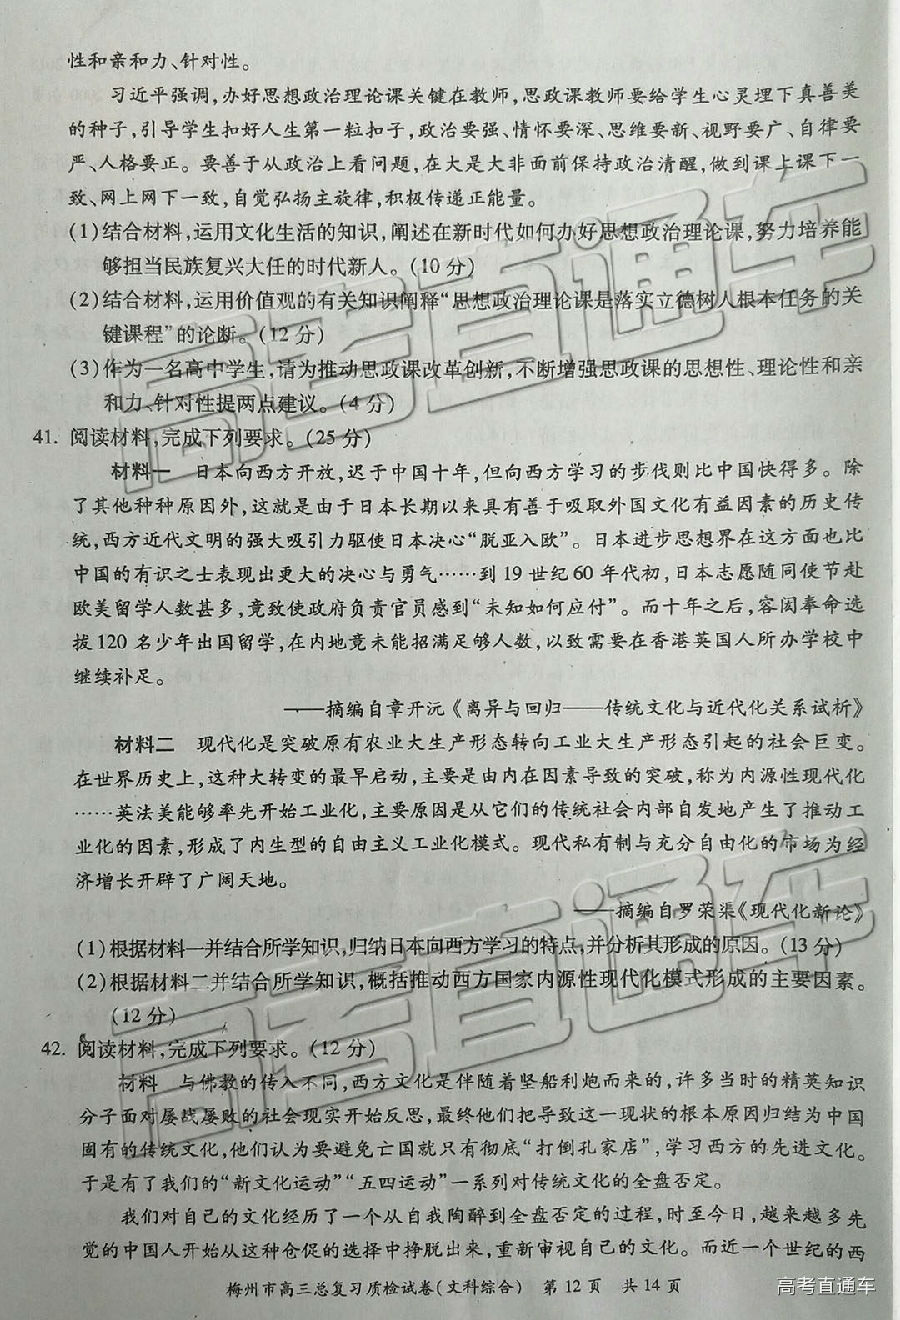 性和亲和力、针对性。
习近平强调,办好思想政治理论课关键在教师,思政课教师要给学生心灵埋下真善美
的种子,引导学生扣好人生第一粒扣子,政治要强、情怀要深、思维要新、视野要广、自律要
严、人格要正。要善于从政治上看问题,在大是大非面前保持政治清醒,做到课上课下一
致、网上网下一致,自觉弘扬主旋律,积极传递正能量。
(1)结合材料,运用文化生活的知识,阐述在新时代如何办好思想政治理论课,努力培养能
够担当民族复兴大任的时代新人。(10分)
(2)结合材料,运用价值观的有关知识阐释“思想政治理论课是落实立德树人根本任务的关
键课程”的论断。(12分)
(3)作为一名高中学生,请为推动思政课改革创新,不断增强思政课的思想性、理论性和亲
和力、针对性提两点建议。(4分)
41. 阅读材料,完成下列要求。(25分)
材料一 日本向西方开放,迟于中国十年,但向西方学习的步伐则比中国快得多。除
了其他种种原因外,这就是由于日本长期以来具有善于吸取外国文化有益因素的历史传
统,西方近代文明的强大吸引力驱使日本决心“脱亚入欧”。日本进步思想界在这方面也比
中国的有识之士表现出更大的决心与勇气……到19世纪60年代初,日本志愿随同使节赴
欧美留学人数甚多,竟致使政府负责官员感到“未知如何应付”。而十年之后,容闳奉命选
拔120名少年出国留学,在内地竟未能招满足够人数,以致需要在香港英国人所办学校中
继续补足。
——摘编自章开沅《离异与回归——传统文化与近代化关系试析》
材料二 现代化是突破原有农业大生产形态转向工业大生产形态引起的社会巨变。
在世界历史上,这种大转变的最早启动,主要是由内在因素导致的突破,称为内源性现代化
……英法美能够率先开始工业化,主要原因是从它们的传统社会内部自发地产生了推动工
业化的因素,形成了内生型的自由主义工业化模式。现代私有制与充分自由化的市场为经
济增长开辟了广阔天地。
——摘编自罗荣渠《现代化新论》
(1)根据材料一并结合所学知识,归纳日本向西方学习的特点,并分析其形成的原因。(13分)
(2)根据材料二并结合所学知识,概括推动西方国家内源性现代化模式形成的主要因素。
(12分)
42. 阅读材料,完成下列要求。(12分)
材料 与佛教的传入不同,西方文化是伴随着坚船利炮而来的,许多当时的精英知识
分子面对屡战屡败的社会现实开始反思,最终他们把导致这一现状的根本原因归结为中国
固有的传统文化,他们认为要避免亡国就只有彻底“打倒孔家店”,学习西方的先进文化。
于是有了我们的“新文化运动”“五四运动”一系列对传统文化的全盘否定。
我们对自己的文化经历了一个从自我陶醉到全盘否定的过程,时至今日,越来越多先
觉的中国人开始从这种仓促的选择中挣脱出来,重新审视自己的文化。而近一个世纪的西
梅州市高三总复习质检试卷(文科综合) 第12页 共14页
高考直通车
高考直通车
高考直通车